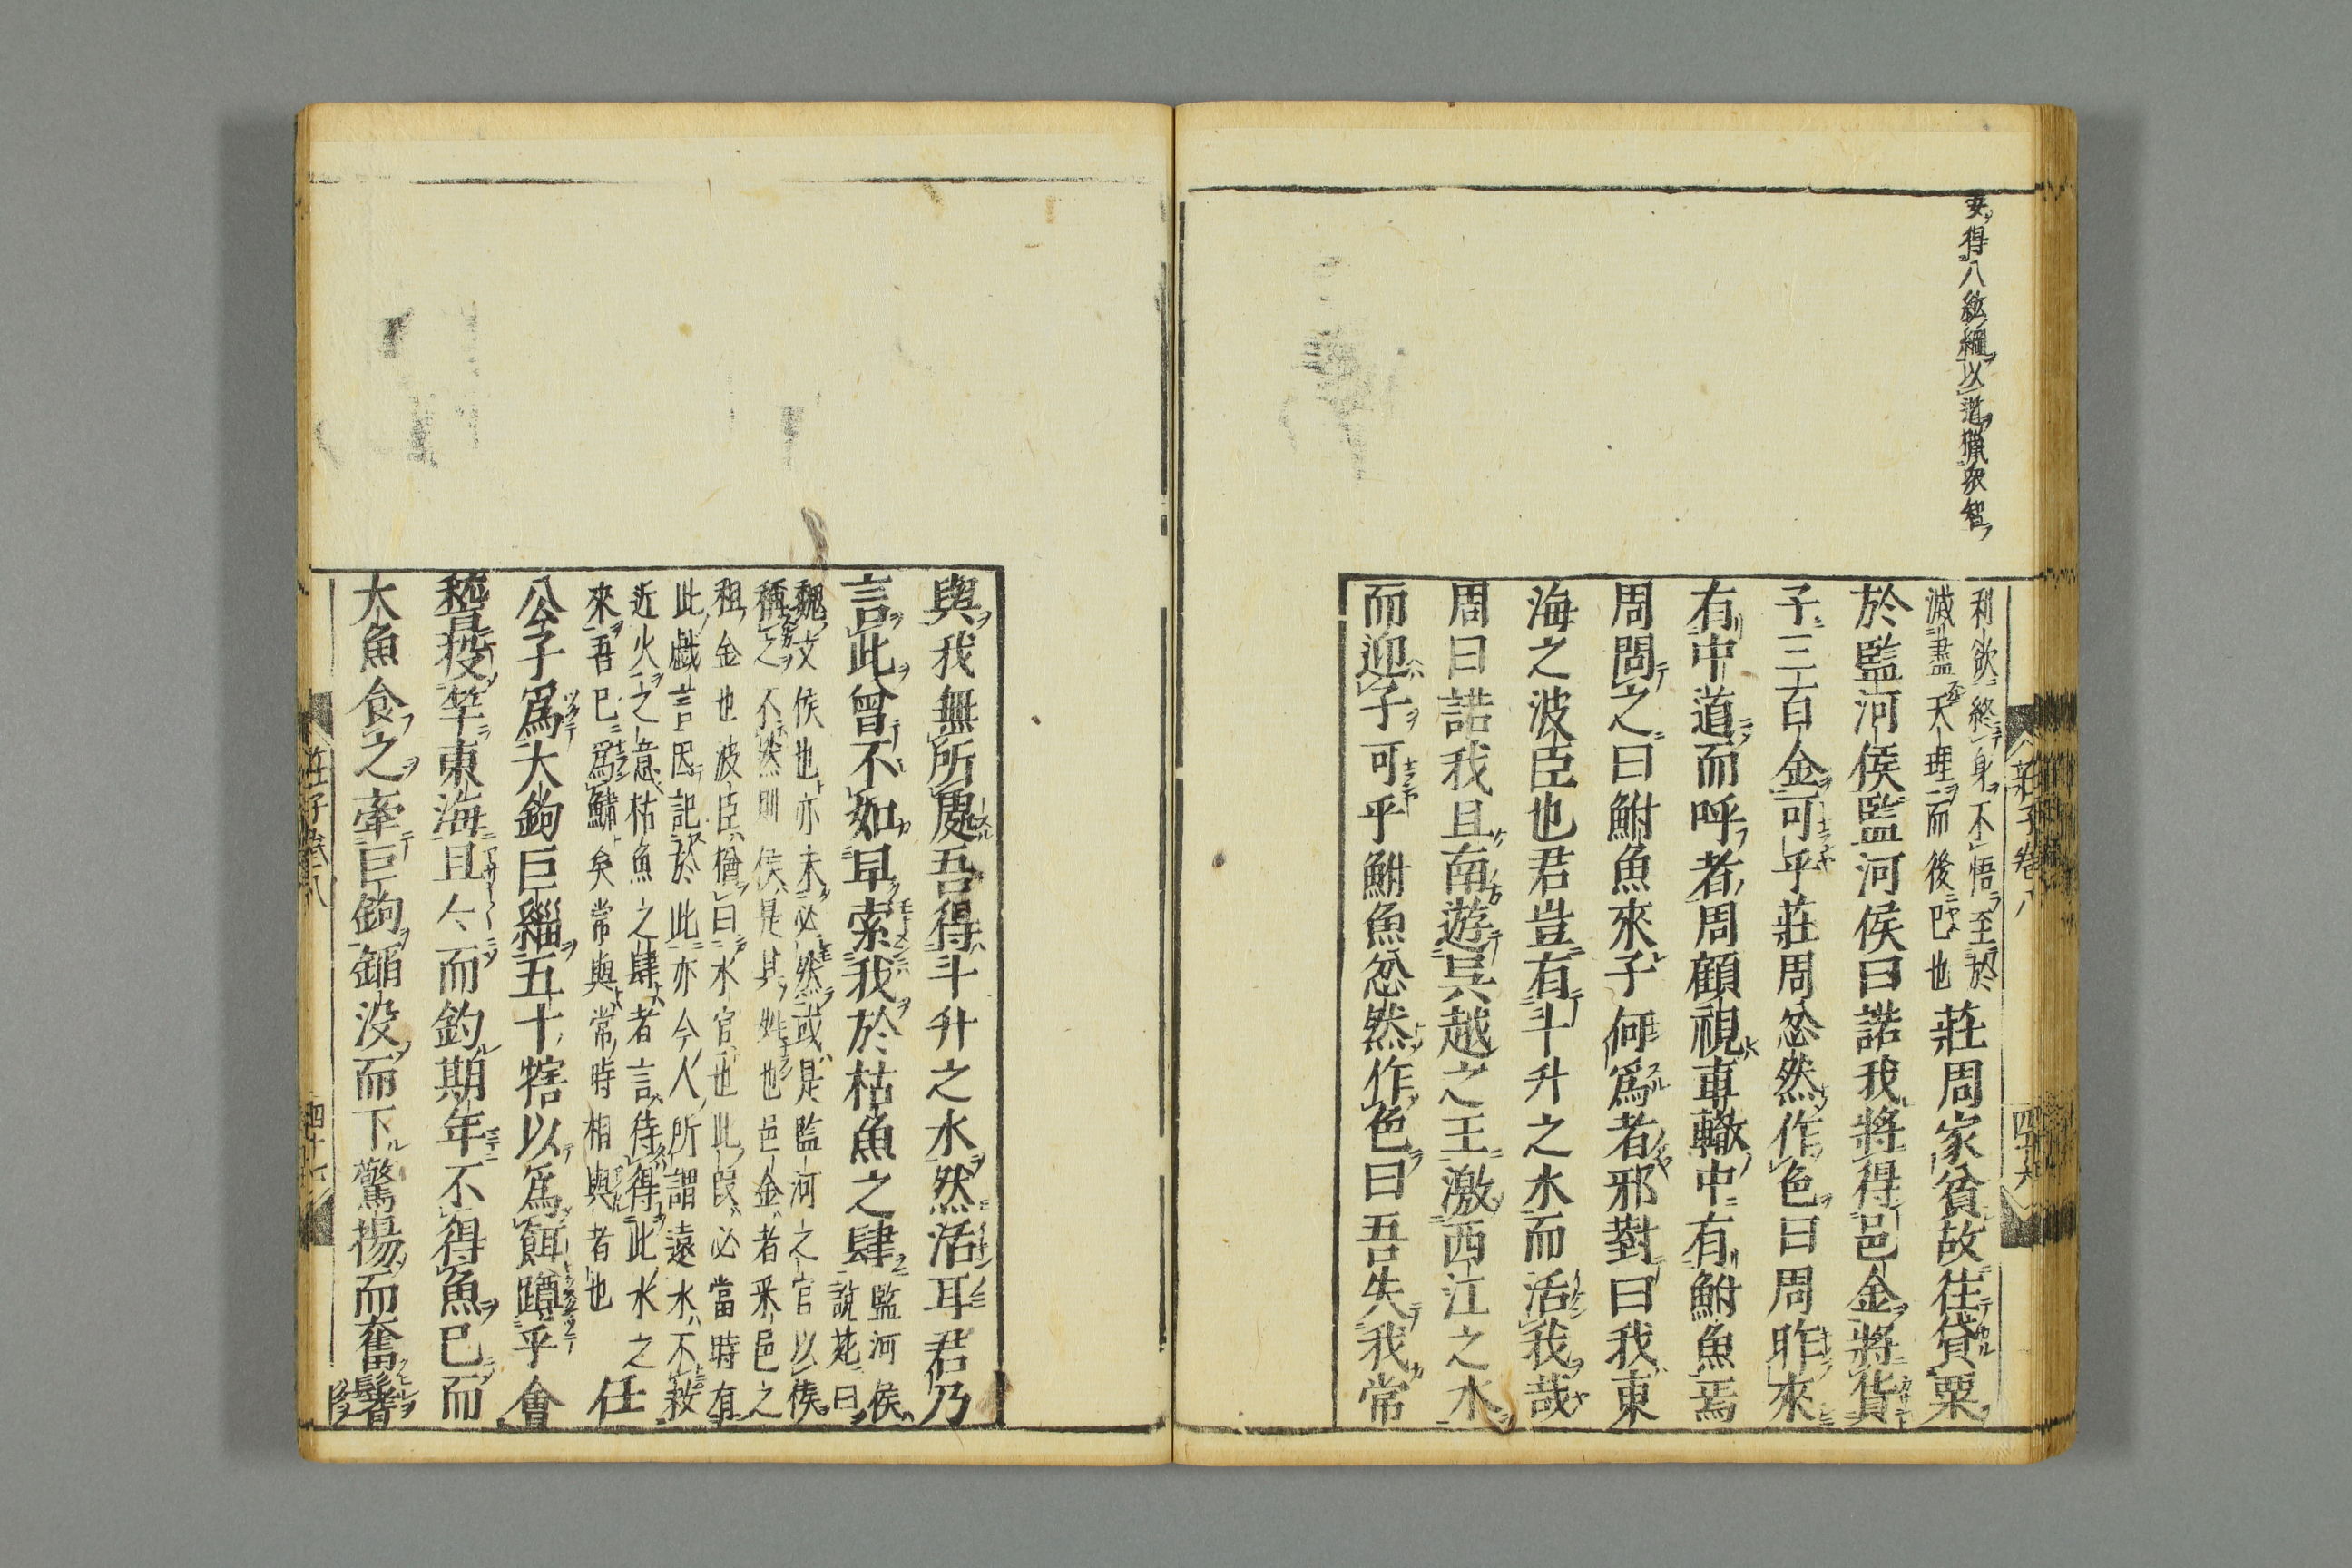 安得八紘綱以道獵衆智
利欲終身不悟至於
滅盡天理而後已也
莊周家貧故往貸粟
於監河侯監河侯曰諾我將得邑金將貸
子三百金可乎莊周忿然作色曰周昨來
有中道而呼者周顧視車轍中有鮒魚焉
周問之曰鮒魚來子何爲者邪對曰我東
海之波臣也君豈有斗升之水而活我哉
周曰諾我且南遊吳越之王激西江之水
而迎子可乎鮒魚忿然作色曰吾失我常
莊子卷八
四十六
與我無所處吾得斗升之水然活耳君乃
言此曾不如早索我於枯魚之肆
監河侯
說苑曰
魏文侯也亦未必然或是監河之官以侯
稱之不然則侯是其姓也邑金者采邑之
租金也波臣猶曰水官也此段必當時有
此戲言因記於此亦今人所謂遠水不救
近火之意枯魚之肆者言待得此水之
來吾已爲鱐矣常與常時相與者也
任
公子爲大鉤巨緇五十犗以爲餌蹲乎會
稽投竿東海旦今而釣期年不得魚已而
大魚食之牽巨鉤錎没而下驚揚而奮鬐
莊子卷八